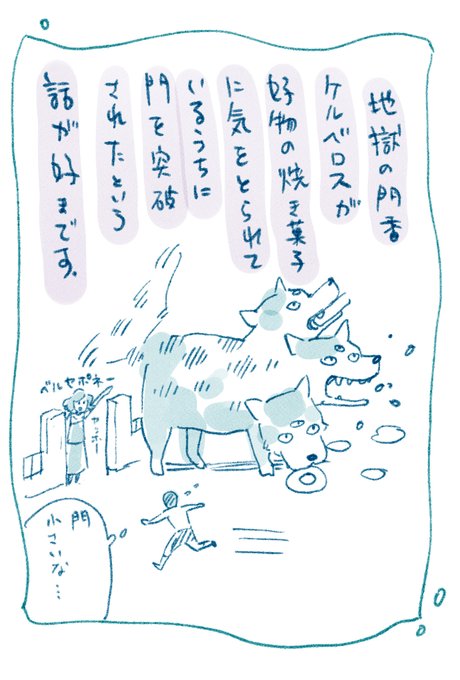 地獄の門番
ケルベロスが
好物の焼き菓子
に気をとられて
いるうちに
門を突破
されたという
話が好きです。
ペルセポネー
ヤッホー
門
小さいな…